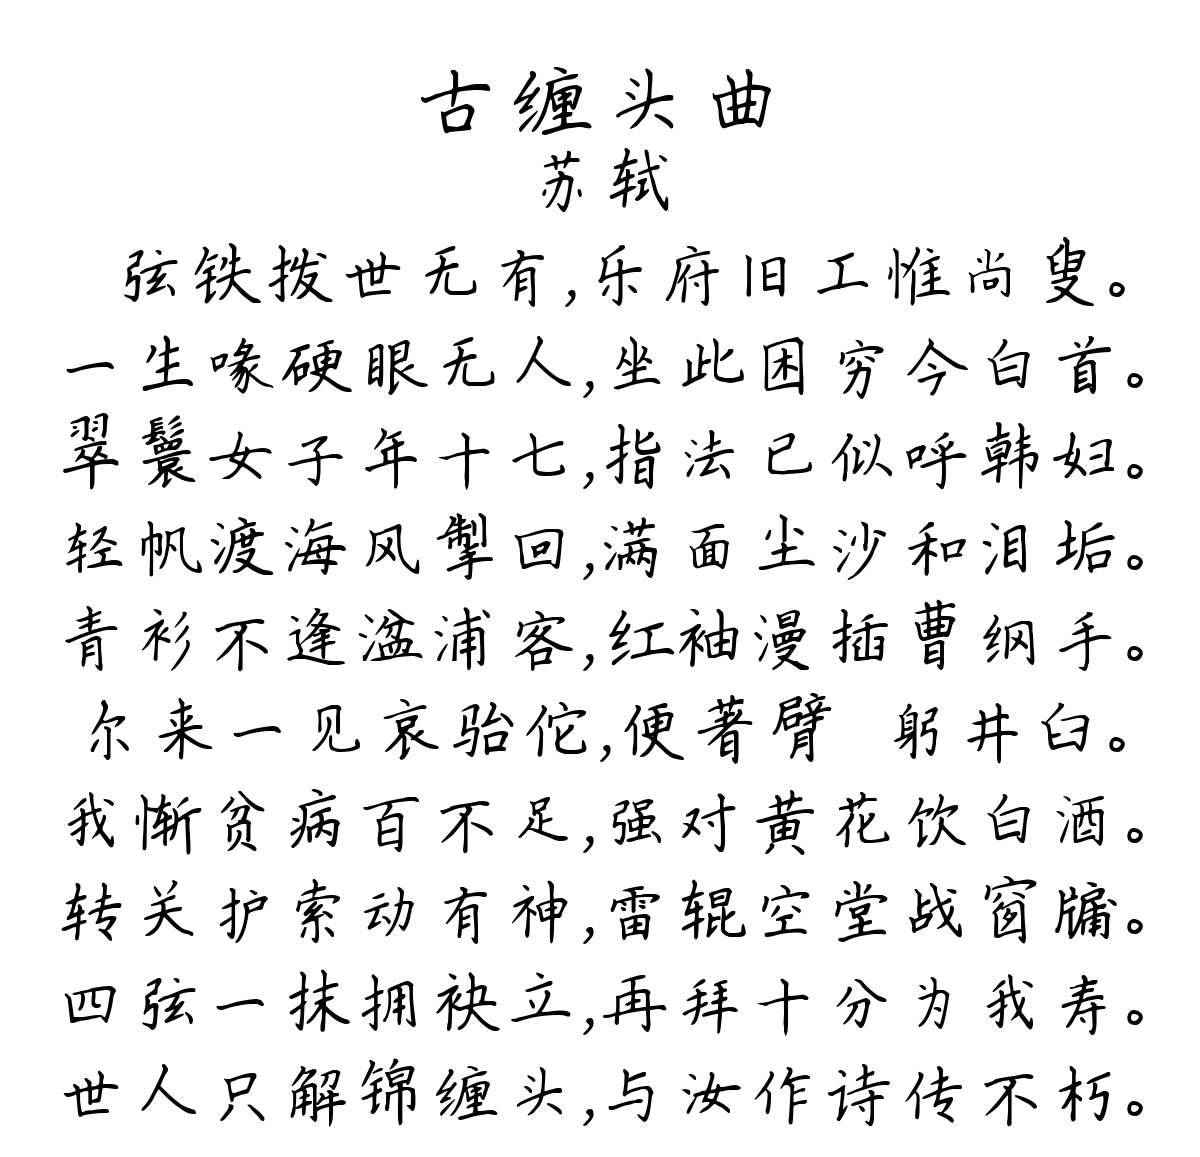 古缠头曲
苏轼
弦铁拨世无有,乐府旧工惟尚叟。
一生喙硬眼无人,坐此困穷今白首。
翠鬟女子年十七,指法已似呼韩妇。
轻帆渡海风掣回,满面尘沙和泪垢。
青衫不逢湓浦客,红袖漫插曹纲手。
尔来一见哀骀佗,便著臂 躬井臼。
我惭贫病百不足,强对黄花饮白酒。
转关护索动有神,雷辊空堂战窗牖。
四弦一抹拥袂立,再拜十分为我寿。
世人只解锦缠头,与汝作诗传不朽。